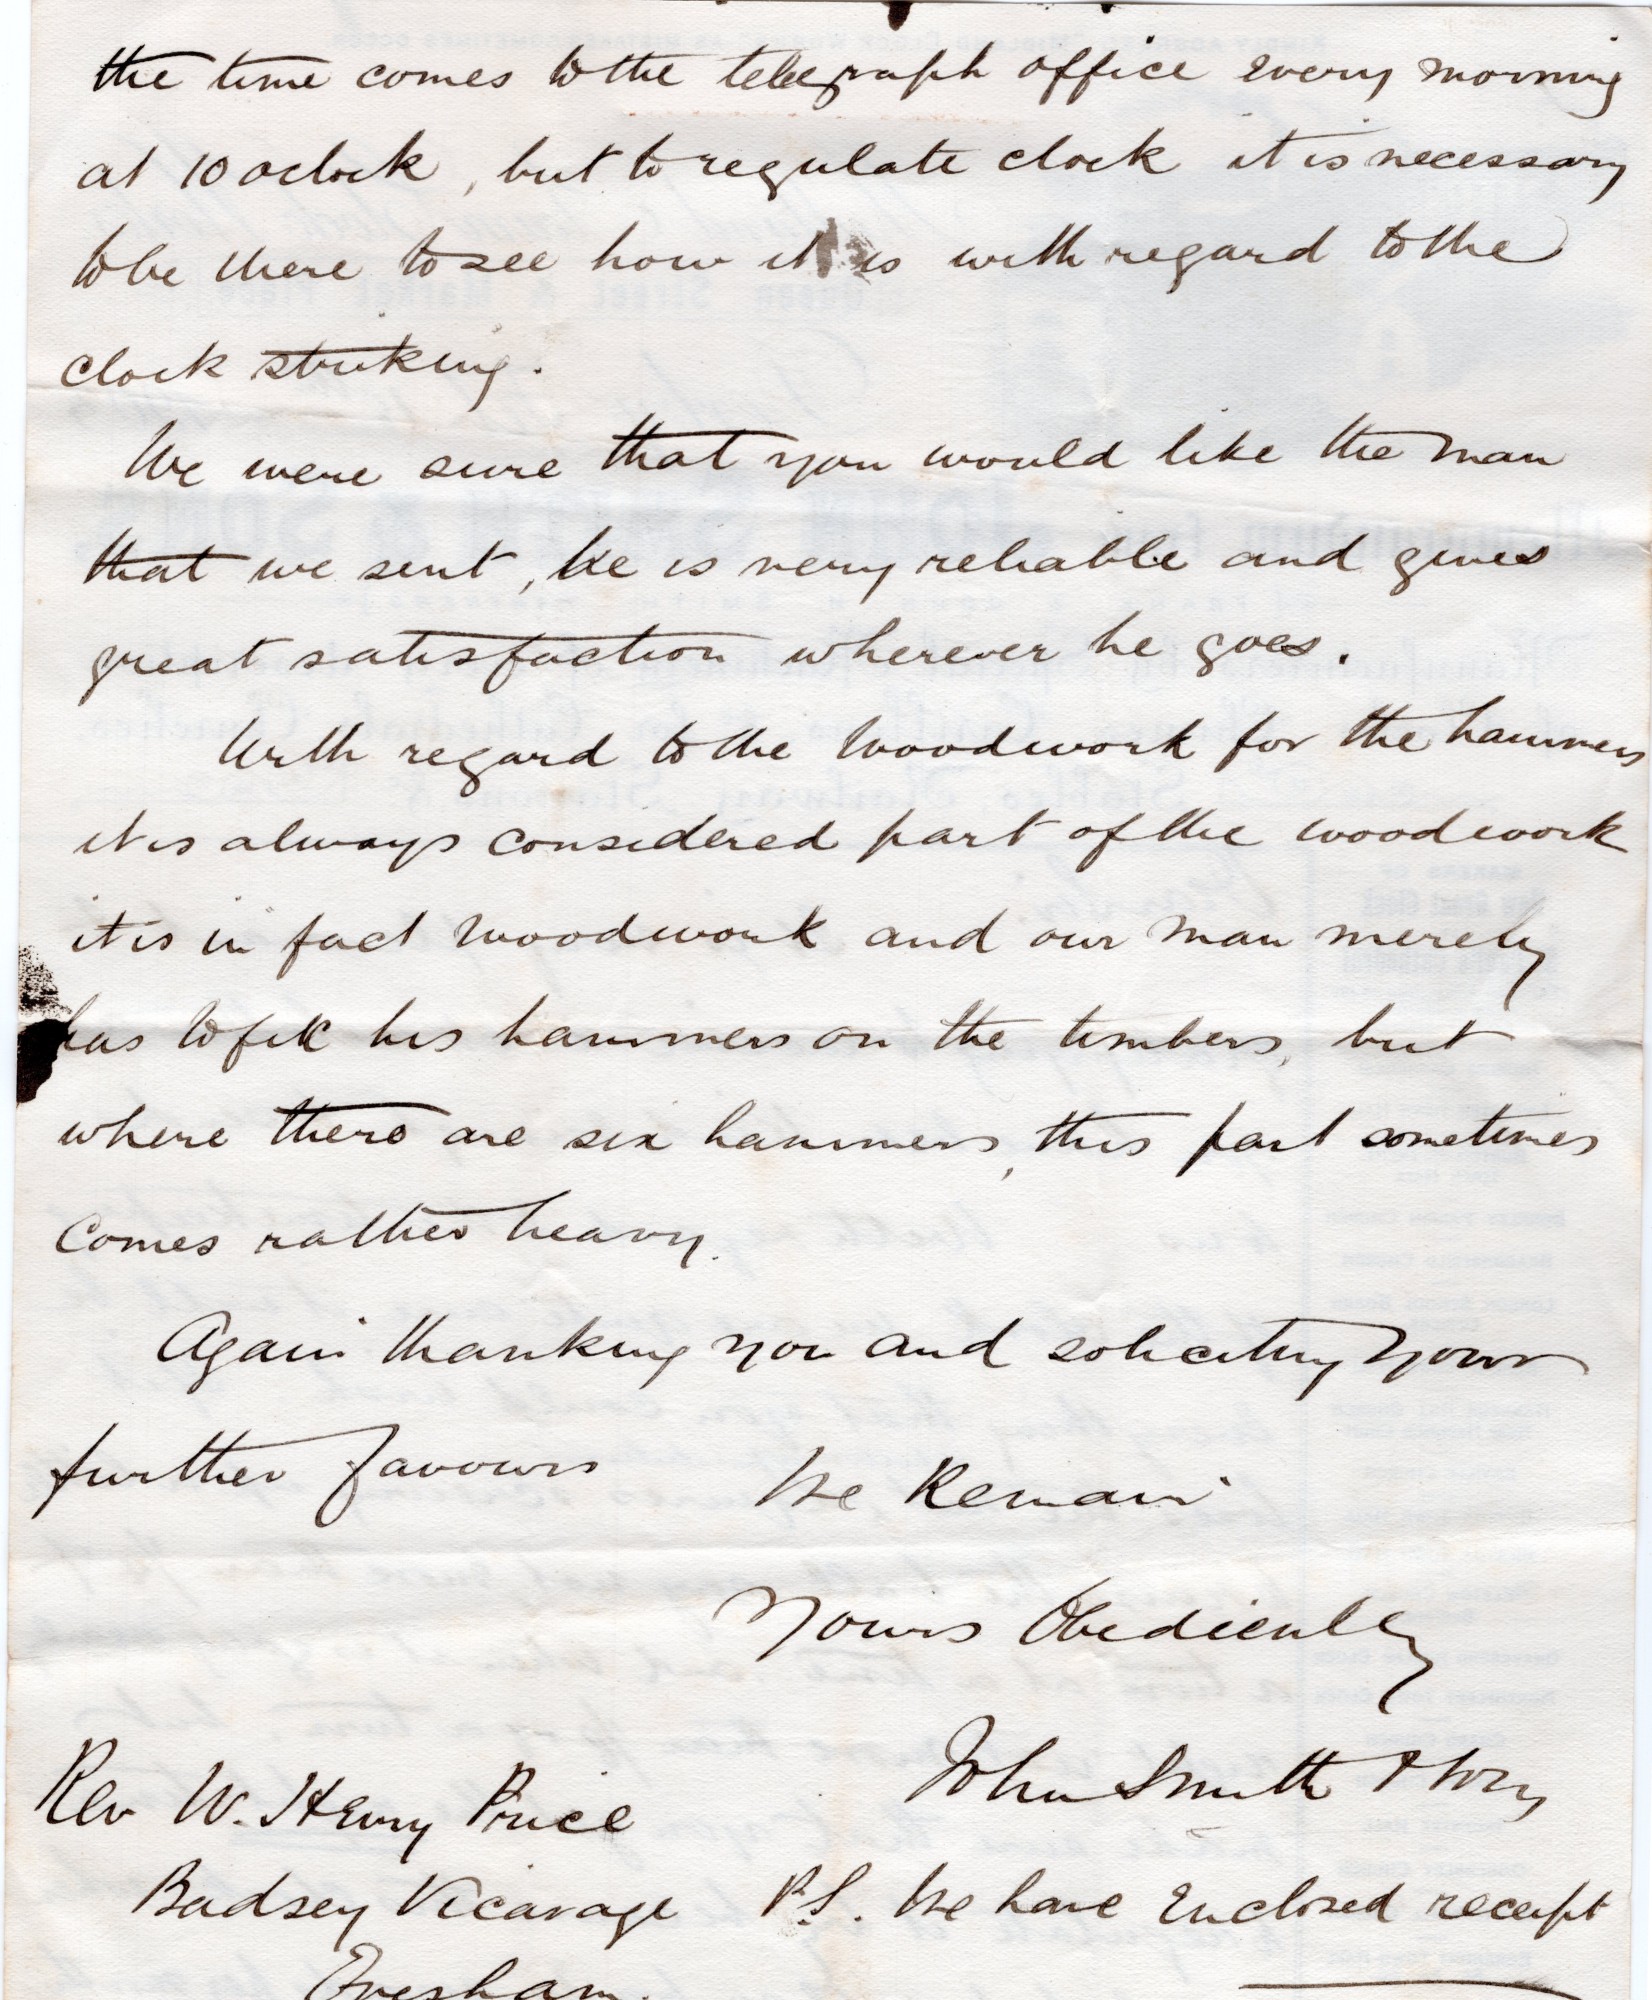 the time comes to the telegraph office every morning
at 10 oclock, but to regulate clock it is necessary
to be there to see how it is with regard to the
clock striking.
We were sure that you would like the man
that we sent, he is very reliable and gives
great satisfaction wherever he goes.
With regard to the woodwork for the hammers
it is always considered part of the woodwork
it is in fact woodwork and our man merely
has to fix his hammers on the timbers, but
where there are six hammers, this part sometimes
comes rather heavy.
Again thanking you and soliciting your
further favours We Remain
Yours Obediently
John Smith & Sons
Rev W. Henry Price
Badsey Vicarage
Evesham.
P.S. We have Enclosed receipt